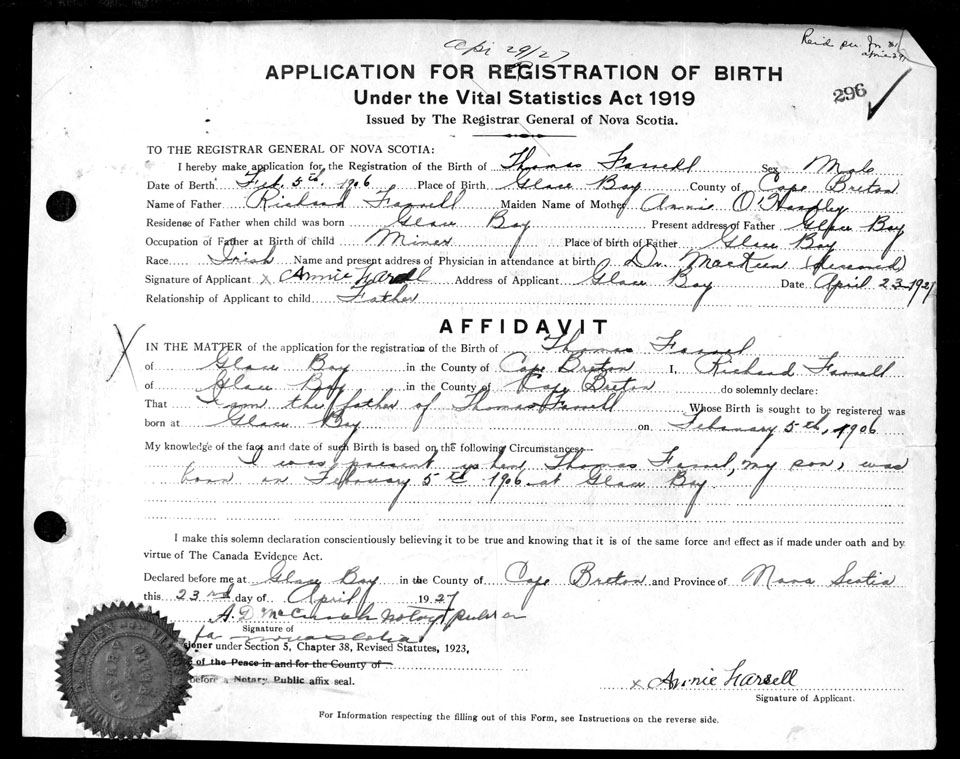 Apr 29/27
296
APPLICATION FOR REGISTRATION OF BIRTH
Under the Vital Statistics Act 1919
Issued by The Registrar General of Nova Scotia.
TO THE REGISTRAR GENERAL OF NOVA SCOTIA:
I hereby make application for the Registration of the Birth of Thomas Farrell Sex Male
Date of Birth Feb. 5th. 1906 Place of Birth Glace Bay County of Cape Breton
Name of Father Richard Farrell Maiden Name of Mother Annie O'Handley
Residense of Father when child was born Glace Bay Present address of Father Glace Bay
Occupation of Father at Birth of child Miner Place of birth of Father Glace Bay
Race Irish Name and present address of Physician in attendance at birth Dr. MacKeen (deceased)
Signature of Applicant x Annie Farrell Address of Applicant Glace Bay Date April 23-1927
Relationship of Applicant to child Father
AFFIDAVIT
IN THE MATTER of the application for the registration of the Birth of Thomas Farrel
of Glace Bay in the County of Cape Breton I, Richard Farrell
of Glace Bay in the County of Cape Breton do solemnly declare:
That I am the father of Thomas Farrell Whose Birth is sought to be registered was
born at Glace Bay on February 5th, 1906
My knowledge of the fact and date of such Birth is based on the following Circumstances:—
I was present when Thomas Farrel, my son, was
born on February 5th 1906 at Glace Bay
I make this solemn declaration conscientiously believing it to be true and knowing that it is of the same force and effect as if made under oath and by
virtue of The Canada Evidence Act.
Declared before me at Glace Bay in the County of Cape Breton and Province of Nova Scotia
this 23rd day of April 1927
A. D. Notary public
Signature of
Nova Scotia
under Section 5, Chapter 38, Revised Statutes, 1923,
of the Peace in and for the County of
before a Notary Public affix seal.
x Annie Farrell
Signature of Applicant.
For Information respecting the filling out of this Form, see Instructions on the reverse side.